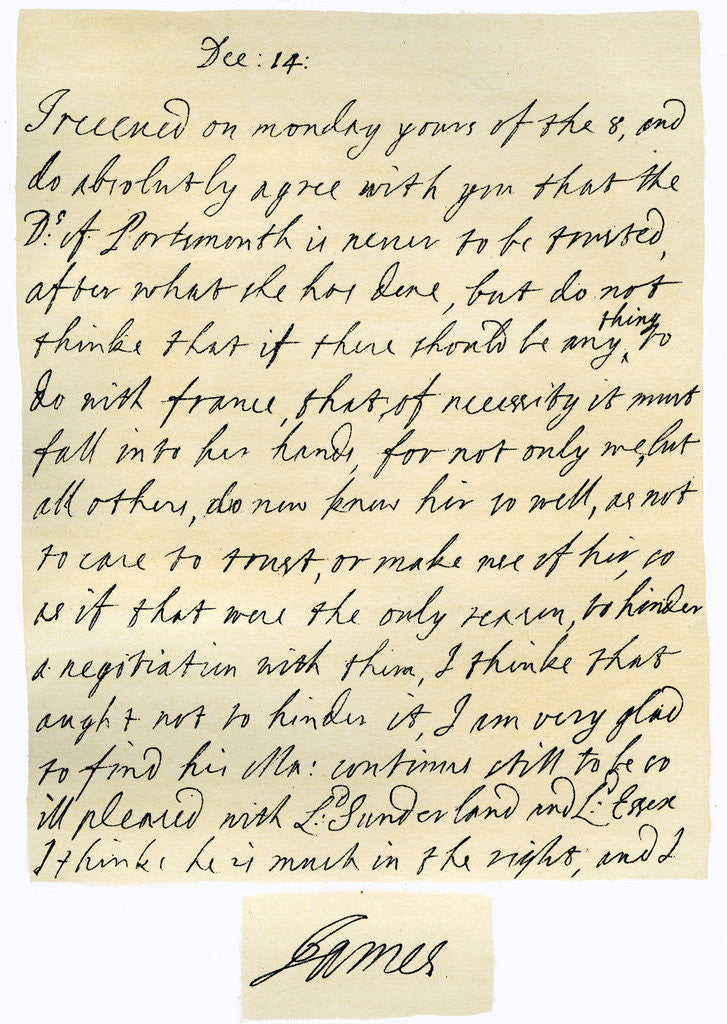 Dec: 14:
I receued on monday yours of the 8, and
do absolutly agree with you that the
D:s of Portsmouth is neuer to be trusted,
after what she has done, but do not
thinke that if there should be any thing to
do with france, that, of necessity it must
fall into her hands, for not only we, but
all others, do now know her so well, as not
to care to trust, or make use of her, so
as if that were the only reason, to hinder
a negotiation with them, I thinke that
aught not to hinder it, I am very glad
to find his Ma: continus still to be so
ill pleased with L:d Sunderland and L:d Essex
I thinke he is much in the right, and I
James